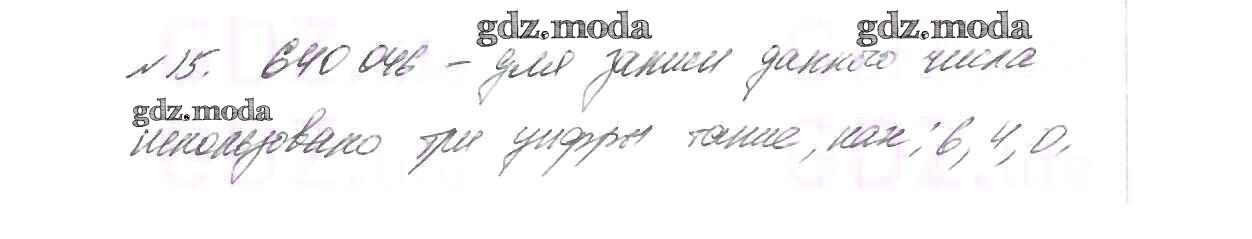 gdz.moda gdz.moda
№15. 640 046 – для записи данного числа
gdz.moda
использовано три цифры такие, как: 6, 4, 0.